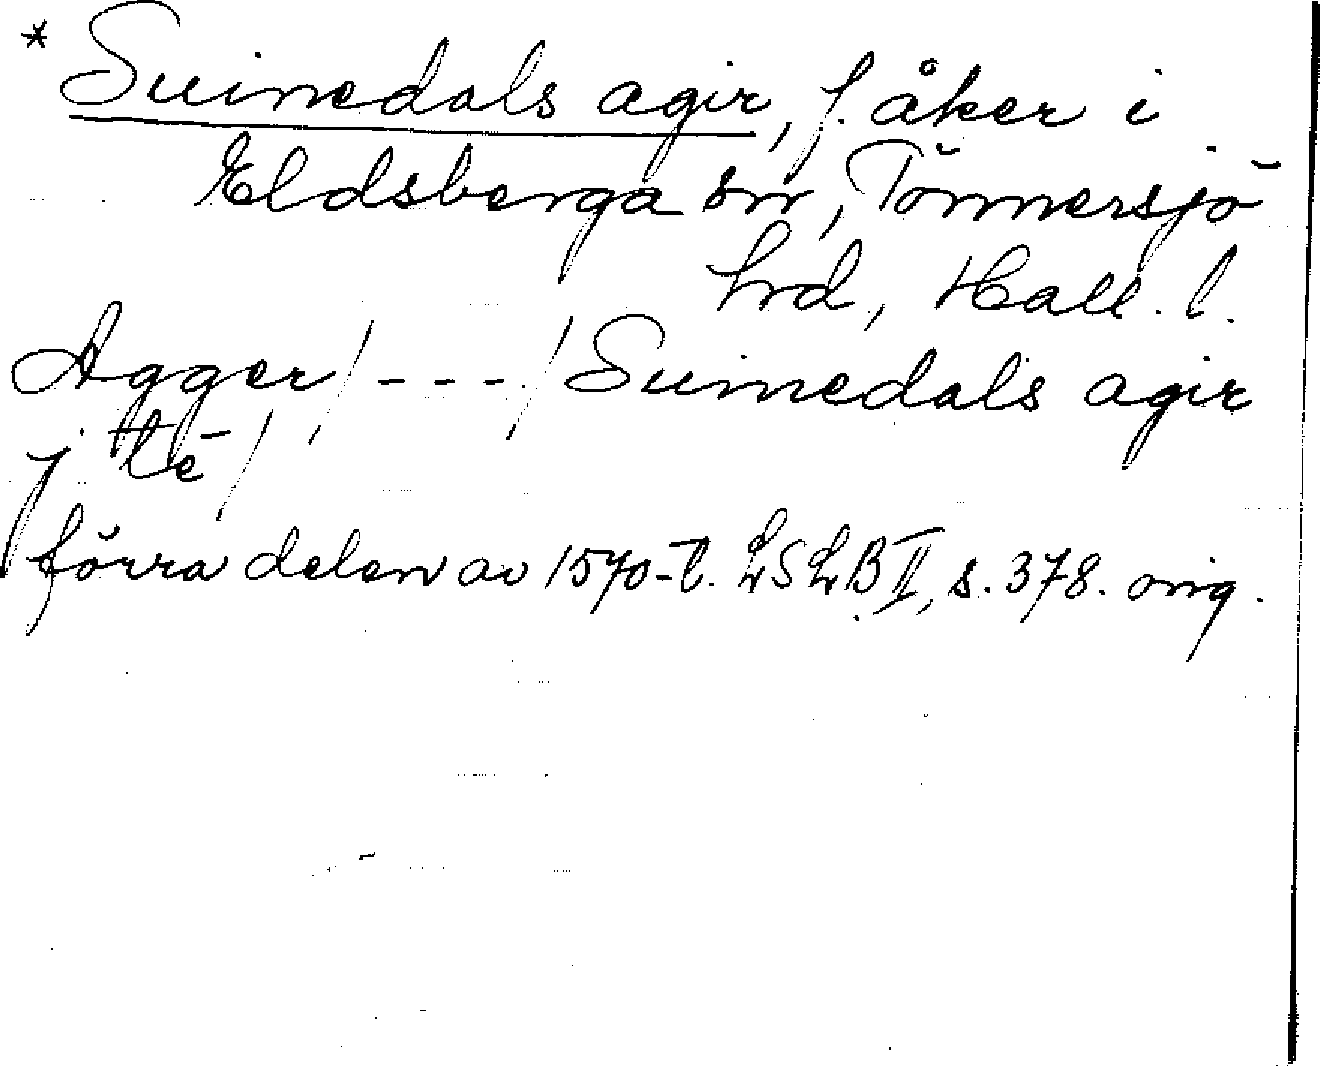 * Suinedals agir, f. åker i
Eldsberga sn, Tönnersjö
hrd, Hall. l.
Agger / - - - / Suinedals agir
j tē /
förra delen av 1570-t. LSLB II, s. 378. orig.